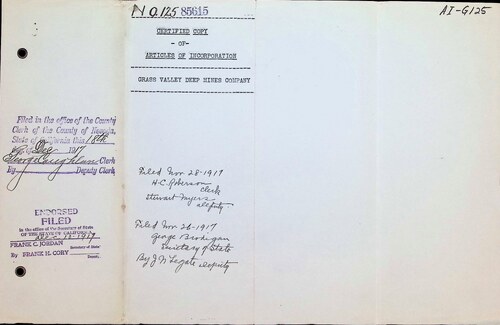 No. 125 85615
CERTIFIED COPY
- OF -
ARTICLES OF INCORPORATION
GRASS VALLEY DEEP MINES COMPANY
AI-G125
Filed in the office of the County
Clerk of the County of Nevada,
State of California this 18th
Dec 1917
Clerk
By Deputy Clerk
ENDORSED
FILED
in the office of the Secretary of State
OF THE STATE OF CALIFORNIA
DEC - 1917
FRANK C. JORDAN
Secretary of State
By FRANK H. CORY
Deputy
Filed Nov 28-1917
H.C. Roberson
Clerk
Stewart Myers
deputy
Filed Nov 26-1917
George Brodigan
Secretary of State
By J W Legate Deputy